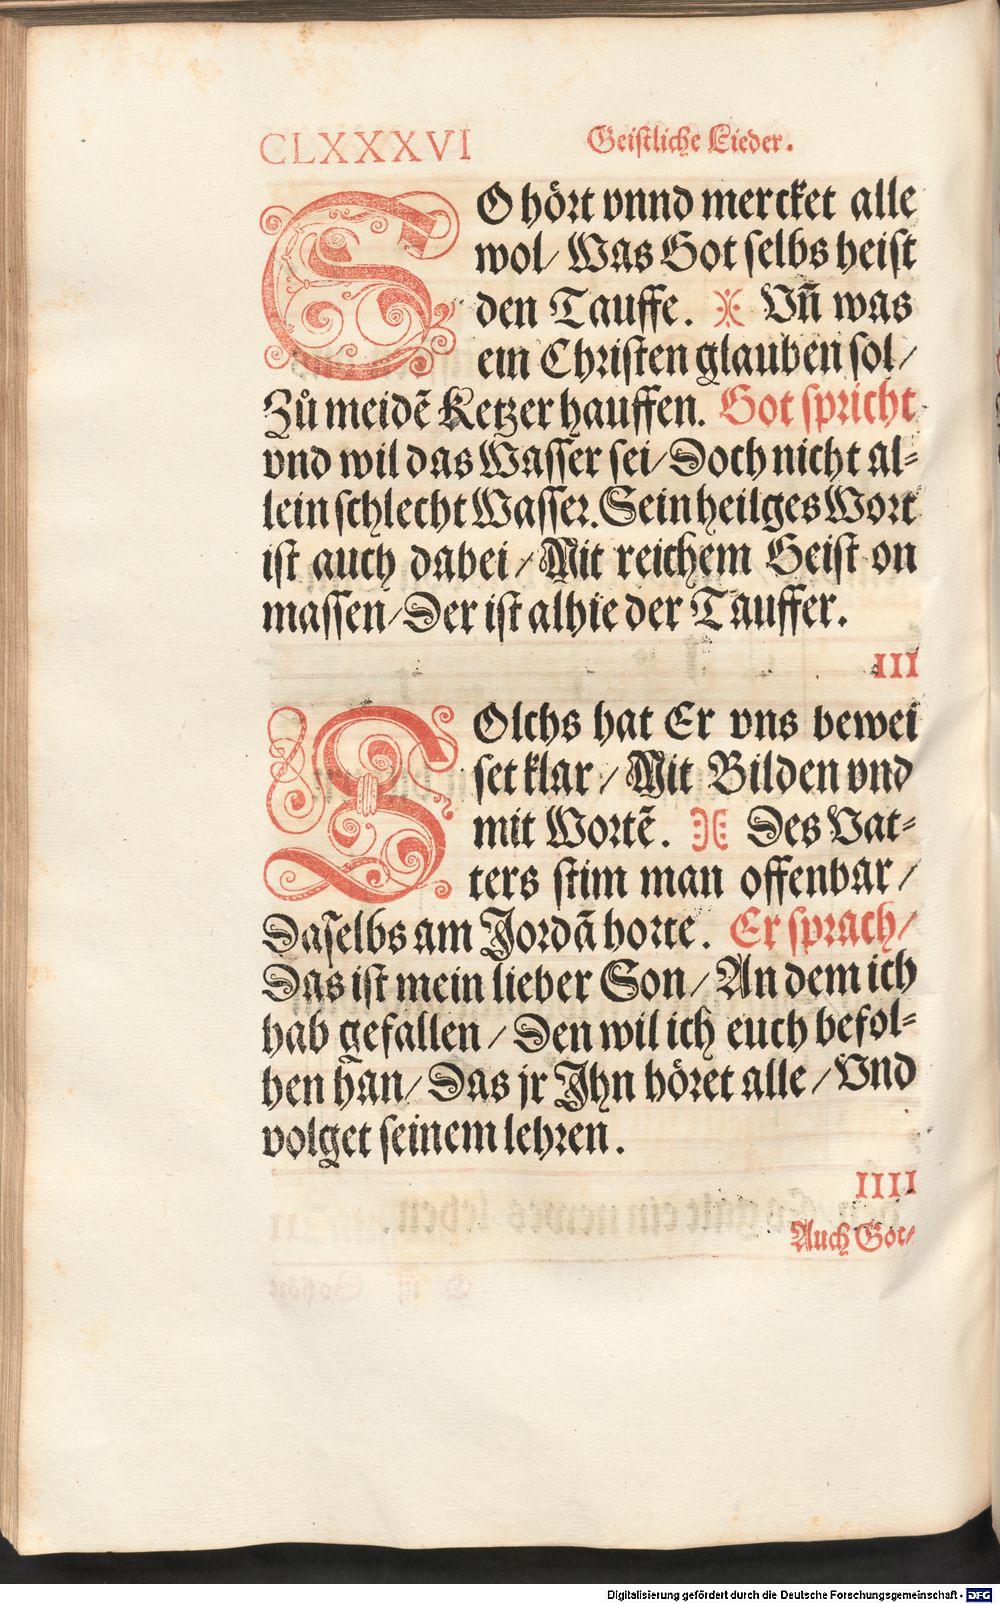 CLXXXVI Geistliche Lieder.
SO hört vnnd mercket alle
wol/ Was Got selbs heist
den Tauffe. Vn̄ was
ein Christen glauben sol/
Zů meidē Ketzer hauffen. Got spricht
vnd wil das Wasser sei/ Doch nicht al⸗
lein schlecht Wasser. Sein heilges Wort
ist auch dabei/ Mit reichem Geist on
massen/ Der ist alhie der Tauffer.
III
SOlchs hat Er vns bewei
set klar/ Mit Bilden vnd
mit Wortē. Des Vat⸗
ters stim man offenbar/
Daselbs am Jordā horte. Er sprach/
Das ist mein lieber Son/ An dem ich
hab gefallen/ Den wil ich euch befol⸗
hen han/ Das jr Ihn höret alle/ Vnd
volget seinem lehren.
IIII
Auch Got⸗
Digitalisierung gefördert durch die Deutsche Forschungsgemeinschaft - DFG